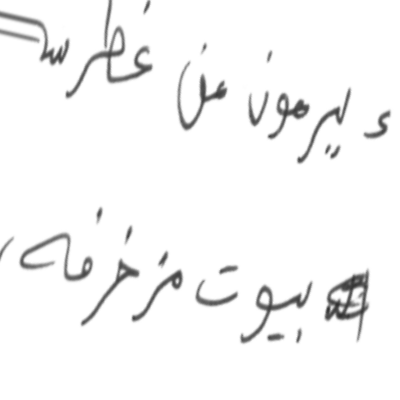 ء ليرهون عن غطرسـ
بيوت مزخرفه